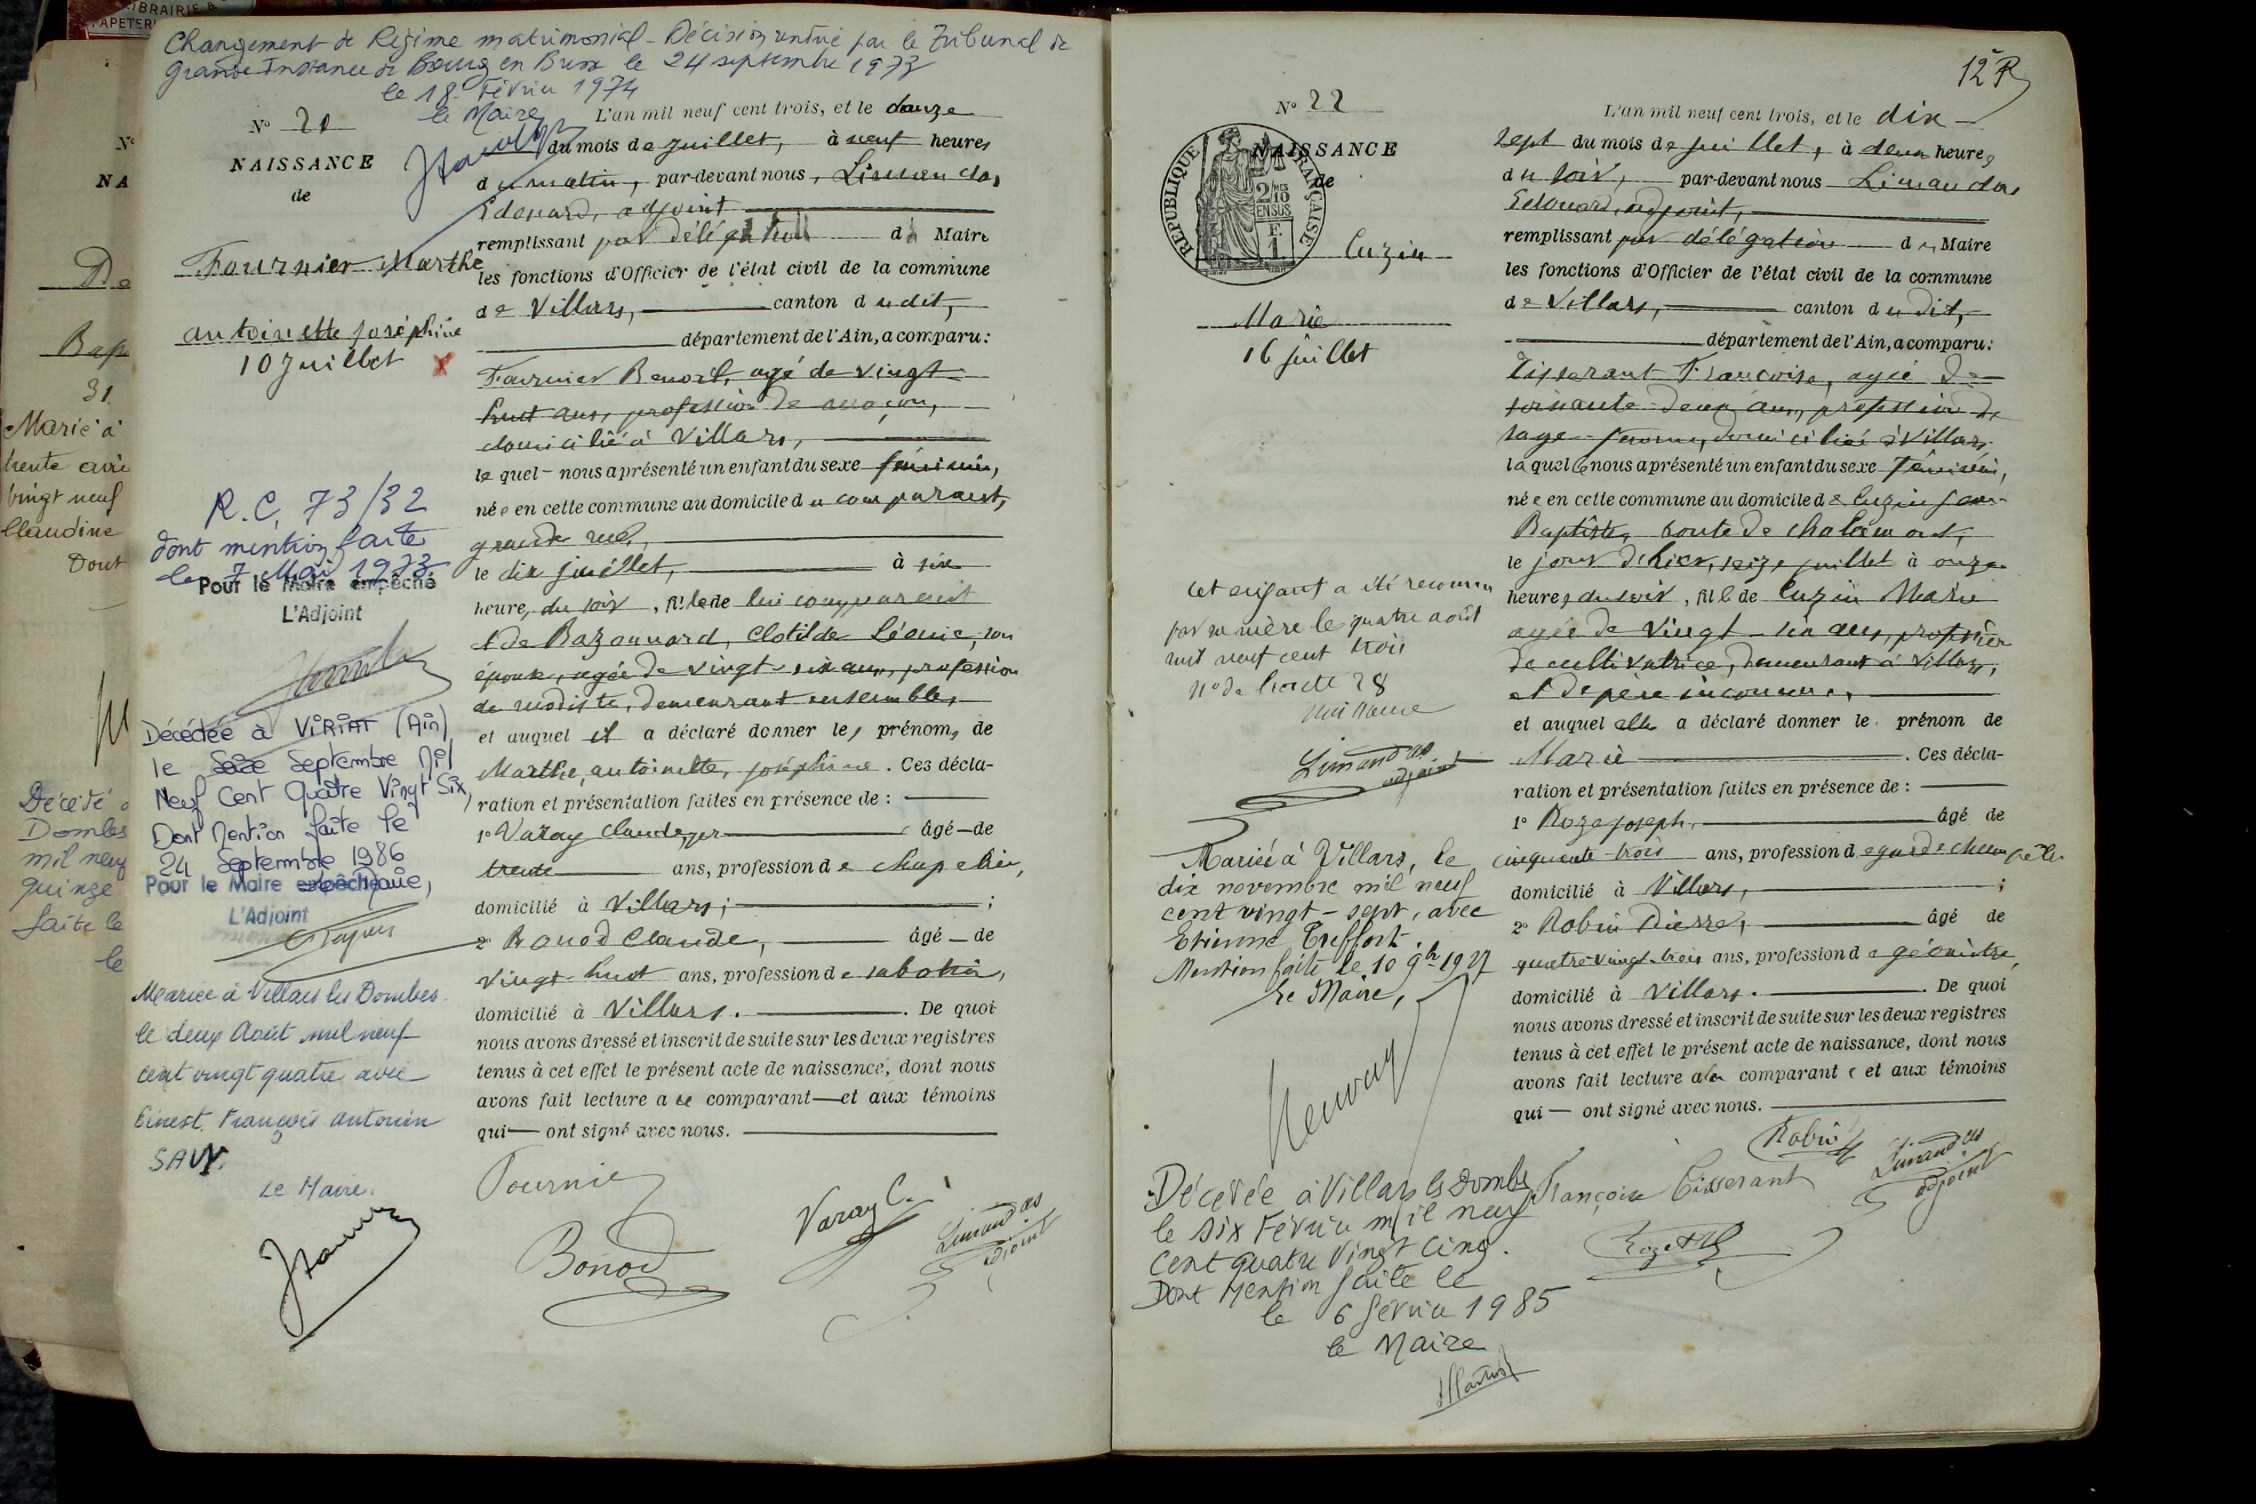 LIBRAIRIE &
PAPETER
Changement de Régime matrimonial - Décision rendue par le Tribunal de
Grande Instance de Bourg en Bresse le 24 septembre 1973
le 18 Février 1974
le Maire
N° 21
NAISSANCE
de
Fournier Marthe
antoinette joséphine
10 Juillet X
R.C. 73/32
dont mention faite
le 7 Mai 1973
Pour le Maire empêché
L'Adjoint
Décédée à VIRIAT (Ain)
le Seize Septembre Mil
Neuf Cent Quatre Vingt Six,
Dont Mention faite le
24 Septembre 1986
Pour le Maire empêché
L'Adjoint
Mariée à Villars les Dombes
le deux Août mil neuf
cent vingt quatre avec
Ernest François Antonin
Le Maire.
L'an mil neuf cent trois, et le douze
du mois de juillet, à neuf heures
du matin, par-devant nous, Limandas
Edouard, adjoint
remplissant par délégation du Maire
les fonctions d'Officier de l'état civil de la commune
de Villars, canton dudit,
département de l'Ain, a comparu:
Fournier Benoit, agé de vingt
huit ans, profession de maçon,
domicilié à Villars,
lequel nous a présenté un enfant du sexe féminin,
née en cette commune au domicile du comparant,
grande rue,
le dix juillet, à six
heures du soir, fille de lui comparant
et de Bazonnard, Clotilde Léonie, son
épouse, agée de vingt-six ans, profession
de modiste, demeurant ensemble,
et auquel il a déclaré donner les prénoms de
Marthe, antoinette, joséphine. Ces décla-
ration et présentation faites en présence de:
1° Varay Claude, âgé de
trente ans, profession de chapelier,
domicilié à Villars;
2° Bonod Claude, âgé de
vingt-huit ans, profession de sabotier,
domicilié à Villars. De quoi
nous avons dressé et inscrit de suite sur les deux registres
tenus à cet effet le présent acte de naissance, dont nous
avons fait lecture au comparant et aux témoins
qui ont signé avec nous.
Fournier
Bonod
Varay C.
Limandas
adjoint
12
N° 22
NAISSANCE
de
RÉPUBLIQUE FRANÇAISE
2/10
EN SUS
F.
1
Luzin
Marie
16 juillet
Cet enfant a été reconnu
par sa mère le quatre août
mil neuf cent trois
n° de l'acte 28
Naissance
Limandas
adjoint
Mariée à Villars, le
dix novembre mil neuf
cent vingt-sept, avec
Etienne Treffort.
Mention faite le 10 9bre 1927
Le Maire,
Décédée à Villars les Dombes
le six Février mil neuf
cent quatre vingt cinq.
Dont Mention faite le
le 6 février 1985
le Maire
L'an mil neuf cent trois, et le dix
sept du mois de juillet, à deux heures
du soir, par-devant nous Limandas
Edouard, adjoint,
remplissant par délégation du Maire
les fonctions d'Officier de l'état civil de la commune
de Villars, canton dudit,
département de l'Ain, a comparu:
Tisserant Françoise, agée de
soixante-deux ans, profession de
sage-femme, domiciliée à Villars,
laquelle nous a présenté un enfant du sexe féminin,
née en cette commune au domicile de Luzin Jean
Baptiste, route de Chalamont,
le jour d'hier, seize juillet à onze
heures du soir, fille de Luzin Marie
agée de vingt-six ans, profession
de cultivatrice, demeurant à Villars,
et de père inconnu,
et auquel elle a déclaré donner le prénom de
Marie. Ces décla-
ration et présentation faites en présence de:
1° Roze joseph, âgé de
cinquante-trois ans, profession de garde champêtre
domicilié à Villars,;
2° Robin Pierre, âgé de
quatre vingt-trois ans, profession de géomètre,
domicilié à Villars. De quoi
nous avons dressé et inscrit de suite sur les deux registres
tenus à cet effet le présent acte de naissance, dont nous
avons fait lecture à la comparante et aux témoins
qui ont signé avec nous.
Robin
Françoise Tisserant
Limandas
adjoint
N°
NA
De
Bap
31
Marie à
trente avri
vingt neuf
Claudine
Dont
Décédé
Dombes
mil neuf
quinze
faite le
le